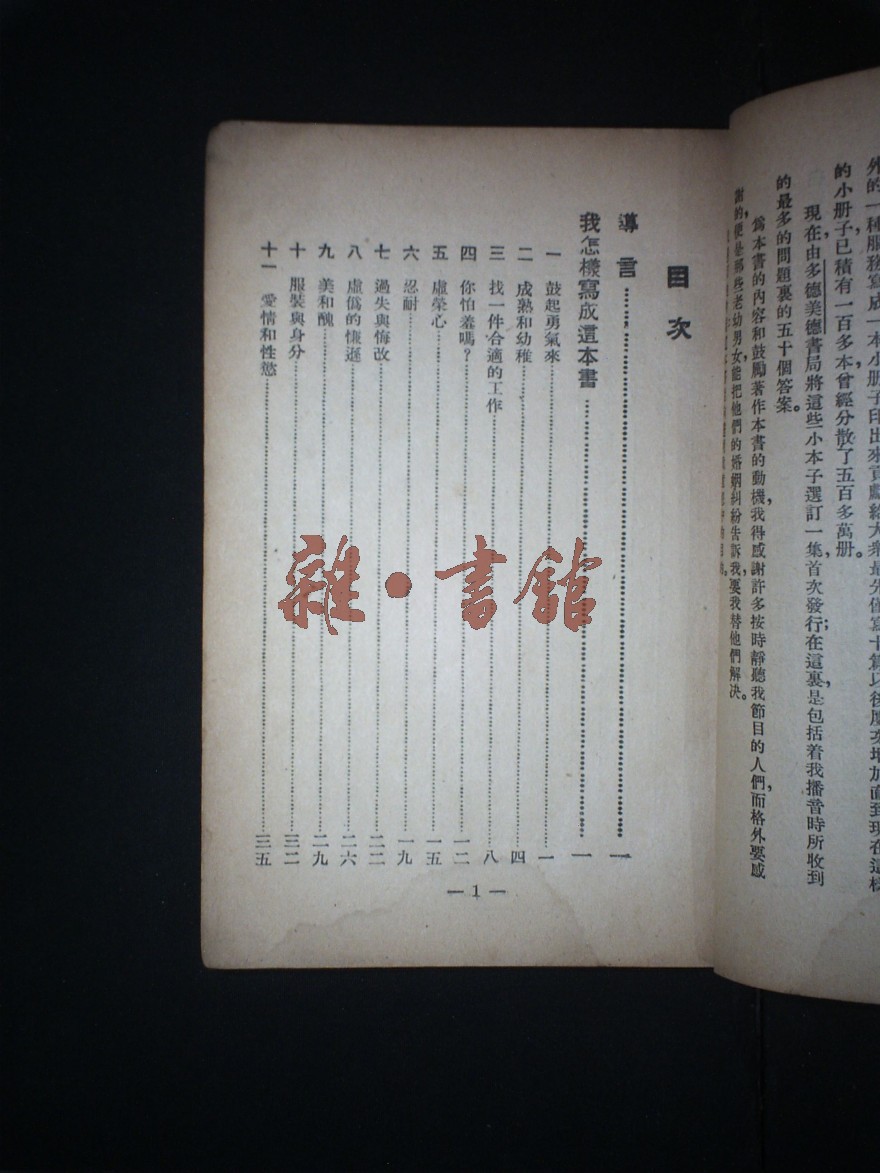 外的一種服務寫成一本小册子印出來貢獻給大衆最先僅寫十篇以後
的小册子已積有一百多本曾經分散了五百多萬册。
現在由多德美德書局將這些小本子選訂一集，首次發行；在這裏，是包括着我播音時所收到
的最多的問題裏的五十個答案。
爲本書的內容和鼓勵著作本書的動機，我得感謝許多按時靜聽我節目的人們，而格外要感
謝的，便是那些老幼男女，能把他們的婚姻糾紛告訴我，要我替他們解决。
目次
導言…………一
我怎樣寫成這本書…………一
一 鼓起勇氣來…………一
二 成熟和幼稚…………四
三 找一件合適的工作…………八
四 你怕羞嗎？…………一二
五 虛榮心…………一五
六 忍耐…………一九
七 過失與悔改…………二二
八 虛僞的慊遜…………二六
九 美和醜…………二九
十 服裝與身分…………三二
十一 愛情和性慾…………三五
— 1 —
雜·書館